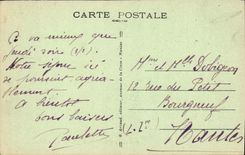 CARTE POSTALE
Ça va mieux que
jeudi soir
Notre séjour ici
se poursuit agréa-
blement.
A bientôt
bons baisers
Paulette
Mme et Mlle
12 rue du Petit
Bourgneuf
Nantes